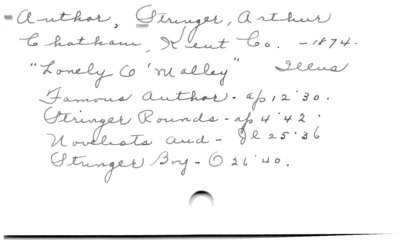 - Author, Stringer, Arthur
Chatham, Kent Co. - 1874.
"Lonely O'Malley" Illus
Famous Author - ap 12 '30.
Stringer Rounds - ap 4 '42.
Novelists and - Je 25 '36
Stringer Boy - O 26 '40.